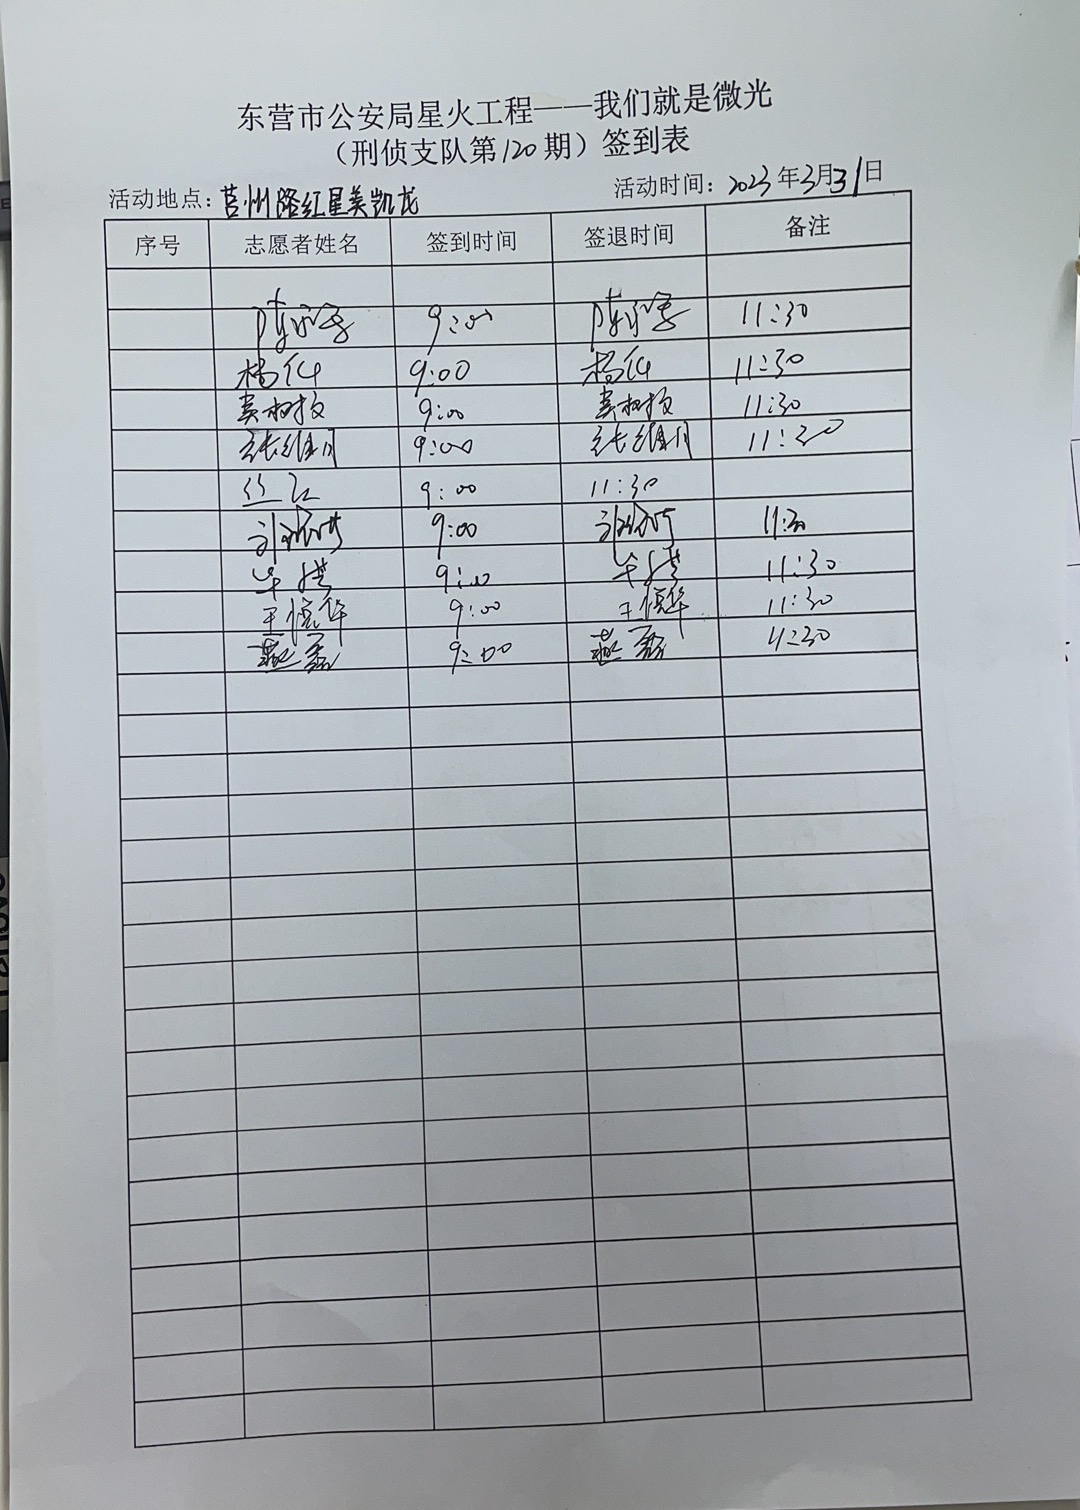 东营市公安局星火工程——我们就是微光
（刑侦支队第120期）签到表
活动地点：莒州路红星美凯龙 活动时间：2023年3月31日
序号 志愿者姓名 签到时间 签退时间 备注
9:00 11:30
杨化 9:00 杨化 11:30
9:00 11:30
张维月 9:00 张维月 11:30
丝红 9:00 11:30
9:00 11:30
9:00 11:30
王恒华 9:00 王恒华 11:30
燕磊 9:00 燕磊 11:30